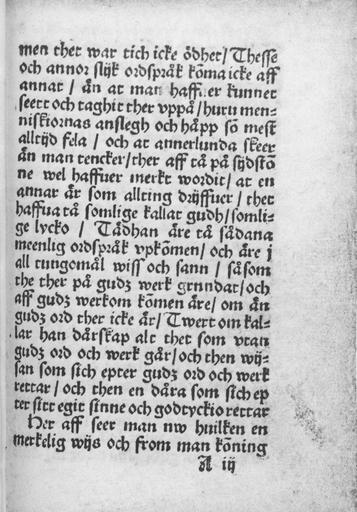 men thet war tich icke ödhet/ Thesse
och annor slijk ordspråk kõma icke aff
annat / än at man haffuer kunnet
seett och taghit ther vppå/ huru men-
niskiornas anslegh och håpp sõ mest
alltijd fela / och at annerlunda skeer
än man tencker/ther aff tå på sijdstõ
ne wel haffuer merkt wordit/ at en
annar är som allting drijffuer / thet
haffua tå somlige kallat gudh/somli-
ge lycko / Tådhan äre tå sådana
meenlig ordspråk vpkõmen/ och äre j
all tungomål wiss och sann / såsom
the ther på gudz werk grundat/och
aff gudz werkom kõmen äre/ om än
gudz ord ther icke är/ Twert om kal-
lar han dårskap alt thet som vtan
gudz ord och werk går/och then wij-
san som sich epter gudz ord och werk
rettar / och then en dåra som sich ep
ter sitt egit sinne och godtyckio rettar
Her aff seer man nw huilken en
merkelig wijs och from man kõning
A ij